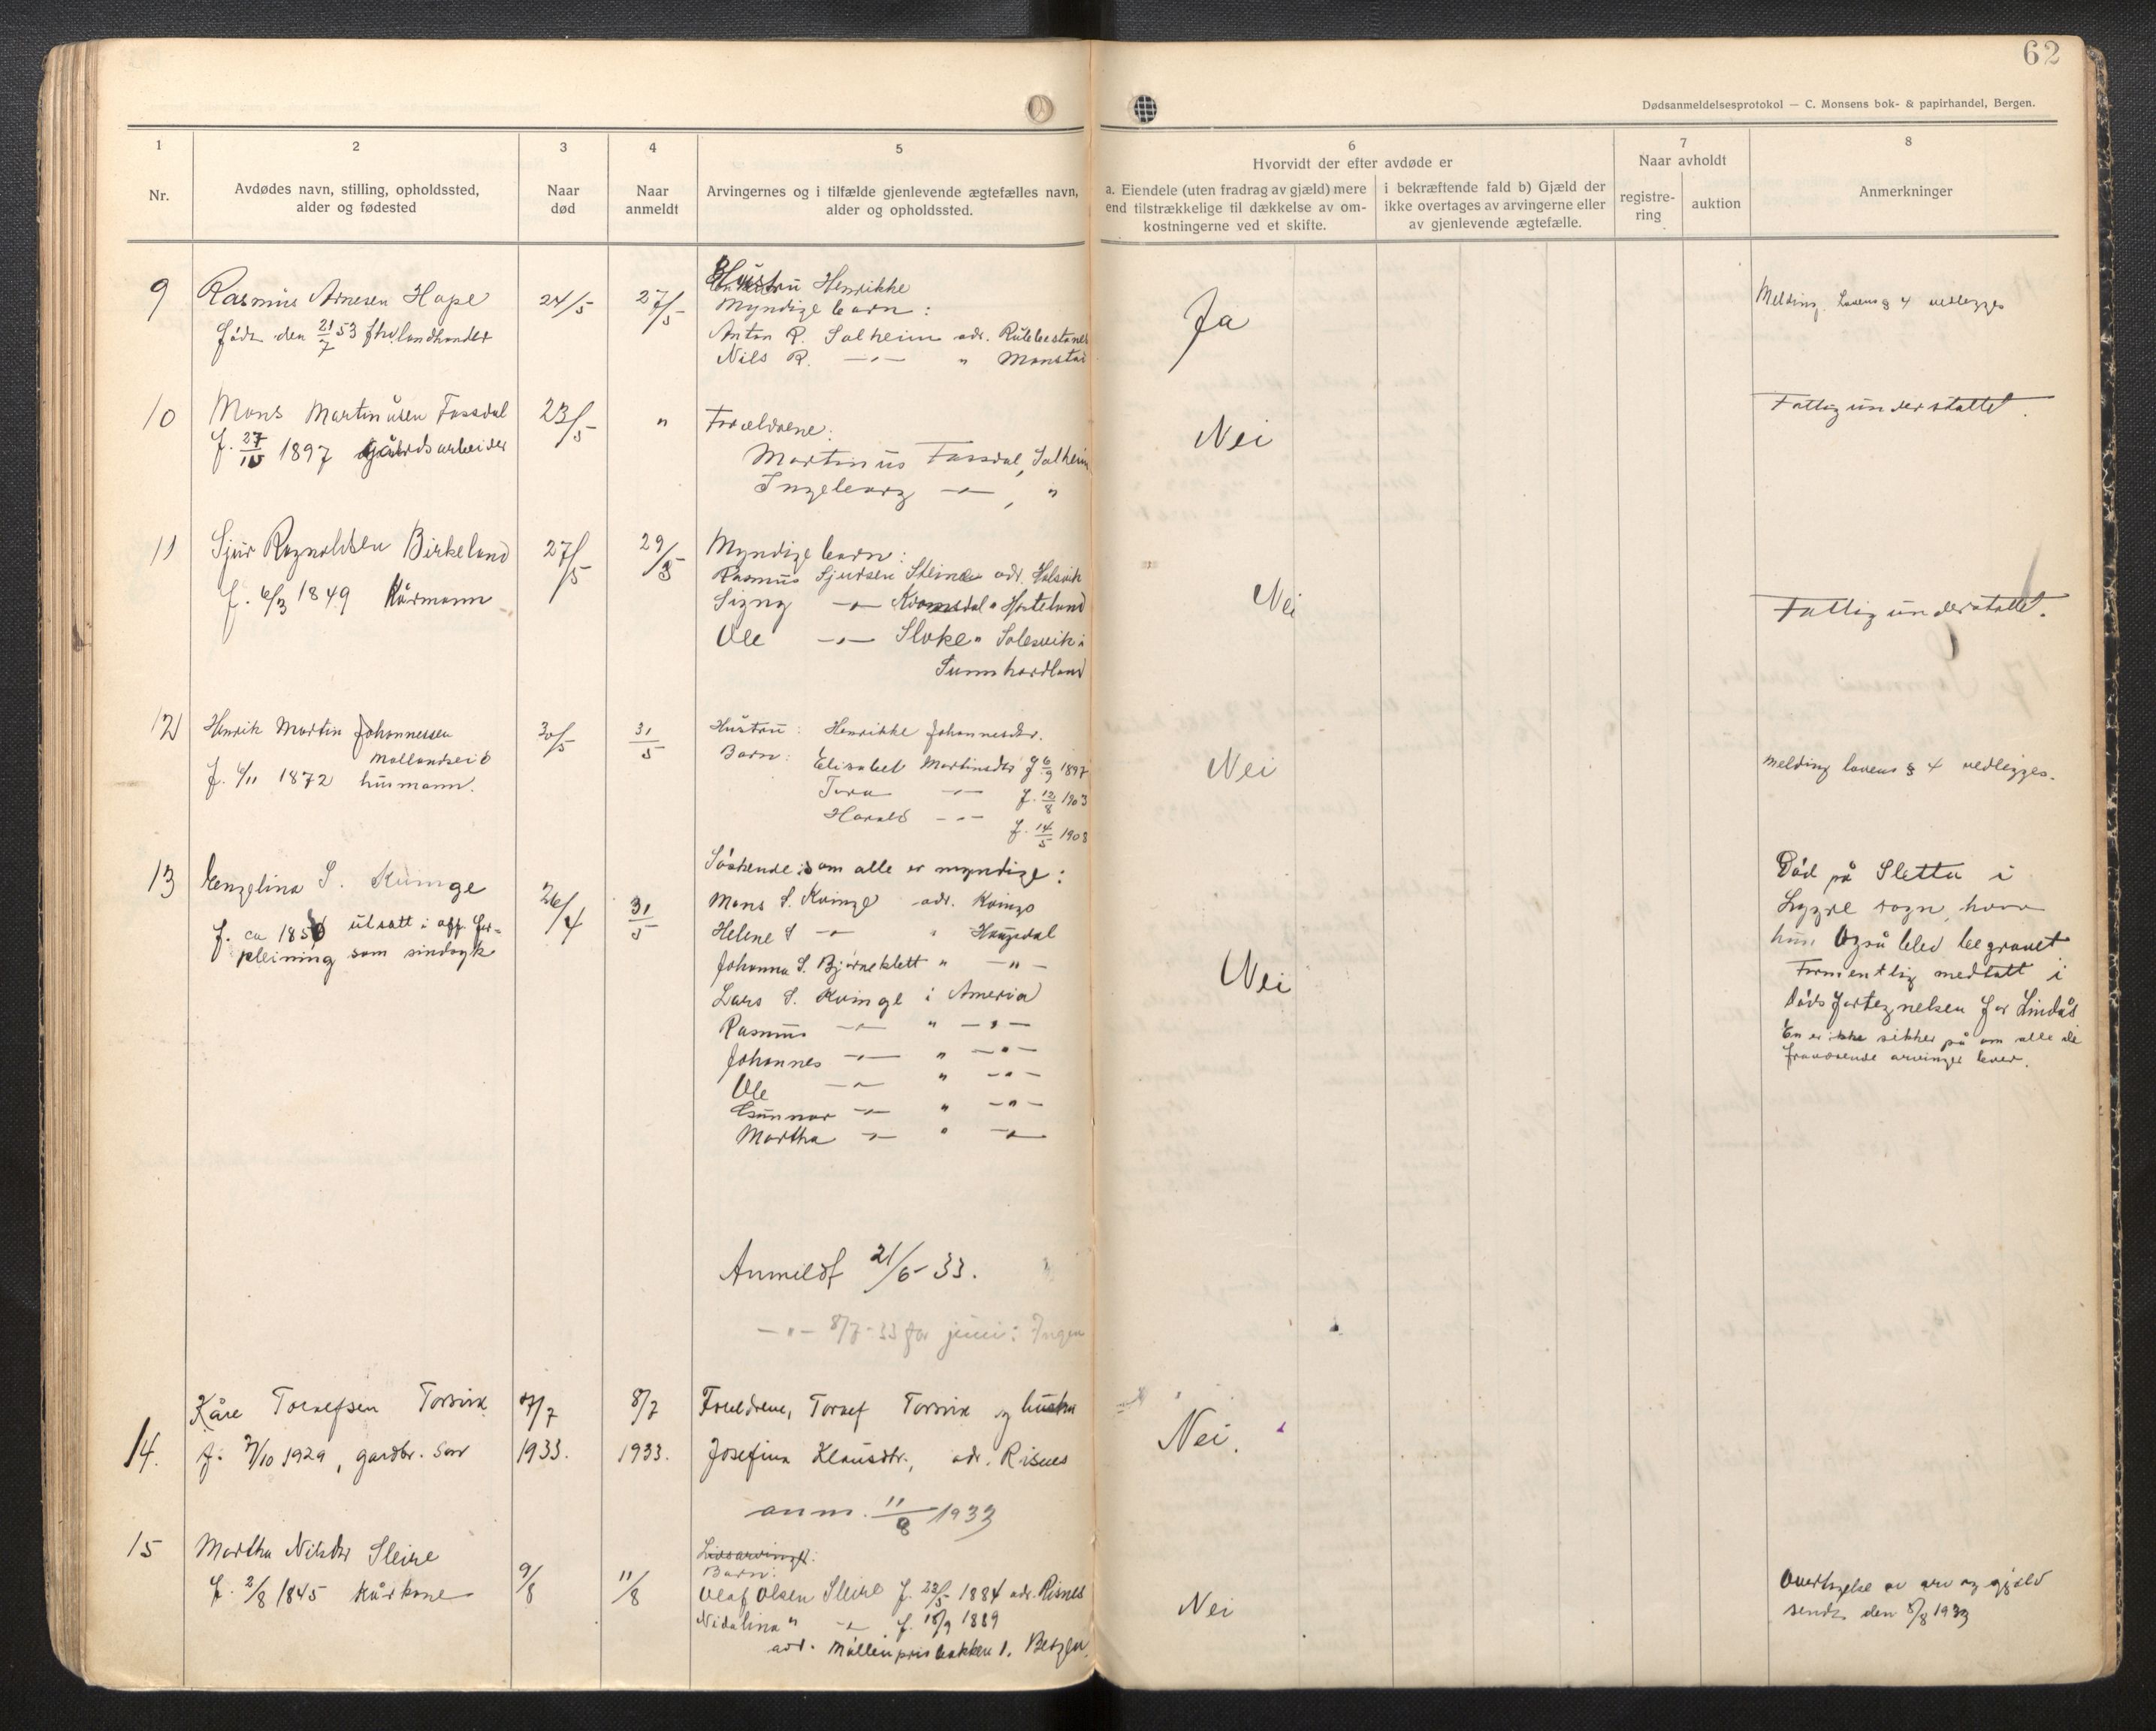 62
Dødsanmeldelsesprotokol — C. Monsens bok- & papirhandel, Bergen.
1
Nr.
2
Avdødes navn, stilling, opholdssted,
alder og fødested
3
Naar
død
4
Naar
anmeldt
5
Arvingernes og i tilfælde gjenlevende ægtefælles navn,
alder og opholdssted.
6
Hvorvidt der efter avdøde er
a. Eiendele (uten fradrag av gjæld) mere
end tilstrækkelige til dækkelse av om-
kostningerne ved et skifte.
i bekræftende fald b) Gjæld der
ikke overtages av arvingerne eller
av gjenlevende ægtefælle.
7
Naar avholdt
registre-
ring
auktion
8
Anmerkninger
9
Rasmus Arnesen Hope
født den 21/7 53 fhv. landhandler
24/5
27/5
Hustru Henrikke
Myndige barn:
Anton R. Solheim adr.
Nils R. —"— " Monstad
Ja
Melding lovens § 4 vedlegges
10
Mons Martinusen Fossdal
f. 27/10 1897 gårdsarbeider
23/5
"
Foreldrene:
Martinus Fossdal, Solheim
Ingeborg —"—, "
Nei
Fattigunderstøttet.
11
Sjur Ragnaldsen Birkeland
f. 6/3 1849 Kårmann
27/5
29/5
Myndige barn:
Rasmus Sjursen Steine adr. Holsvik
Signy —"— Kvamsdal " Hosteland
Ole —"— Sloke " Salesvik i
Sunnhordland
Nei
Fattigunderstøttet.
12
Henrik Martin Johannessen
Mollandseid
f. 6/11 1872 husmann.
30/5
31/5
Hustru: Henrikke Johannesdtr.
Barn: Elisabet Martinsdtr f 6/9 1897
Tora —"— f. 12/8 1903
Harald —"— f. 14/5 1908
Nei
Melding lovens § 4 vedlegges.
13
Engelina S. Kvinge
f. ca 1850 utsatt i off. for-
pleining som sindsyk
26/4
31/5
Søskende som alle er myndige:
Mons S. Kvinge adr. Kvinge
Helene S —"— " Haugsdal
Johanna S. Bjørneklett " —"—
Lars S. Kvinge i America
Rasmus —"— " —"—
Johannes —"— " —"—
Ole —"— " —"—
Gunnar —"— " —"—
Martha —"— " —"—
Nei
Død på Sletta i
Lygre sogn, hvor
hun også blev begravet
Formentlig medtatt i
dødsfortegnelsen for Lindås
En er ikke sikker på om alle de
fraværende arvinger lever.
Anmeldt 21/6 33.
—"— 8/7-33 for juni: Ingen
14.
Kåre Torleifsen Torsvik
f. 7/10 1929, gardbr. søn
7/7
1933.
8/7
1933.
Foreldrene, Torleif Torsvik og hustru
Josefina Klausdtr., adr. Risnes
Nei.
anm. 11/8 1933
15
Martha Nilsdtr Sleire
f. 2/8 1845 kårkone
9/8
11/8
Livsarvinger:
Barn:
Olaf Olsen Sleire f. 23/5 1884 adr. Risnes
Nidalina " —"— f. 18/9 1889
adr. Møllenprisbakken 1. Bergen
Nei
Overtagelse av arv og gjeld
sendt den 8/8 1933